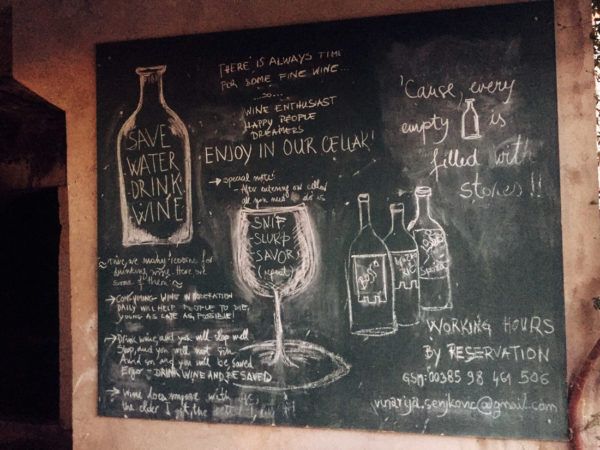 THERE IS ALWAYS TIME
FOR SOME FINE WINE...
...SO...
WINE ENTHUSIAST
HAPPY PEOPLE
DREAMERS
ENJOY IN OUR CELLAR!
SAVE
WATER
DRINK
WINE
→ special note:
- After entering our cellar
all you need to do is
SNIF
SLURP
SAVOR
(repeat)
'Cause, every
empty is
filled with
stories!!
≈ There are many reasons for
drinking wine. Here are
some of them ≈
→ CONSUMING WINE IN MODERATION
DAILY WILL HELP PEOPLE TO DIE,
YOUNG AS LATE AS POSSIBLE!
→ Drink wine, and you will sleep well
Sleep, and you will not sin
Avoid sin, and you will be saved
Ergo - DRINK WINE AND BE SAVED
→ Wine does improve with
the older I get, the
WORKING HOURS
BY RESERVATION
GSM: 00385 98 461 506
vinarija.senjkovic@gmail.com